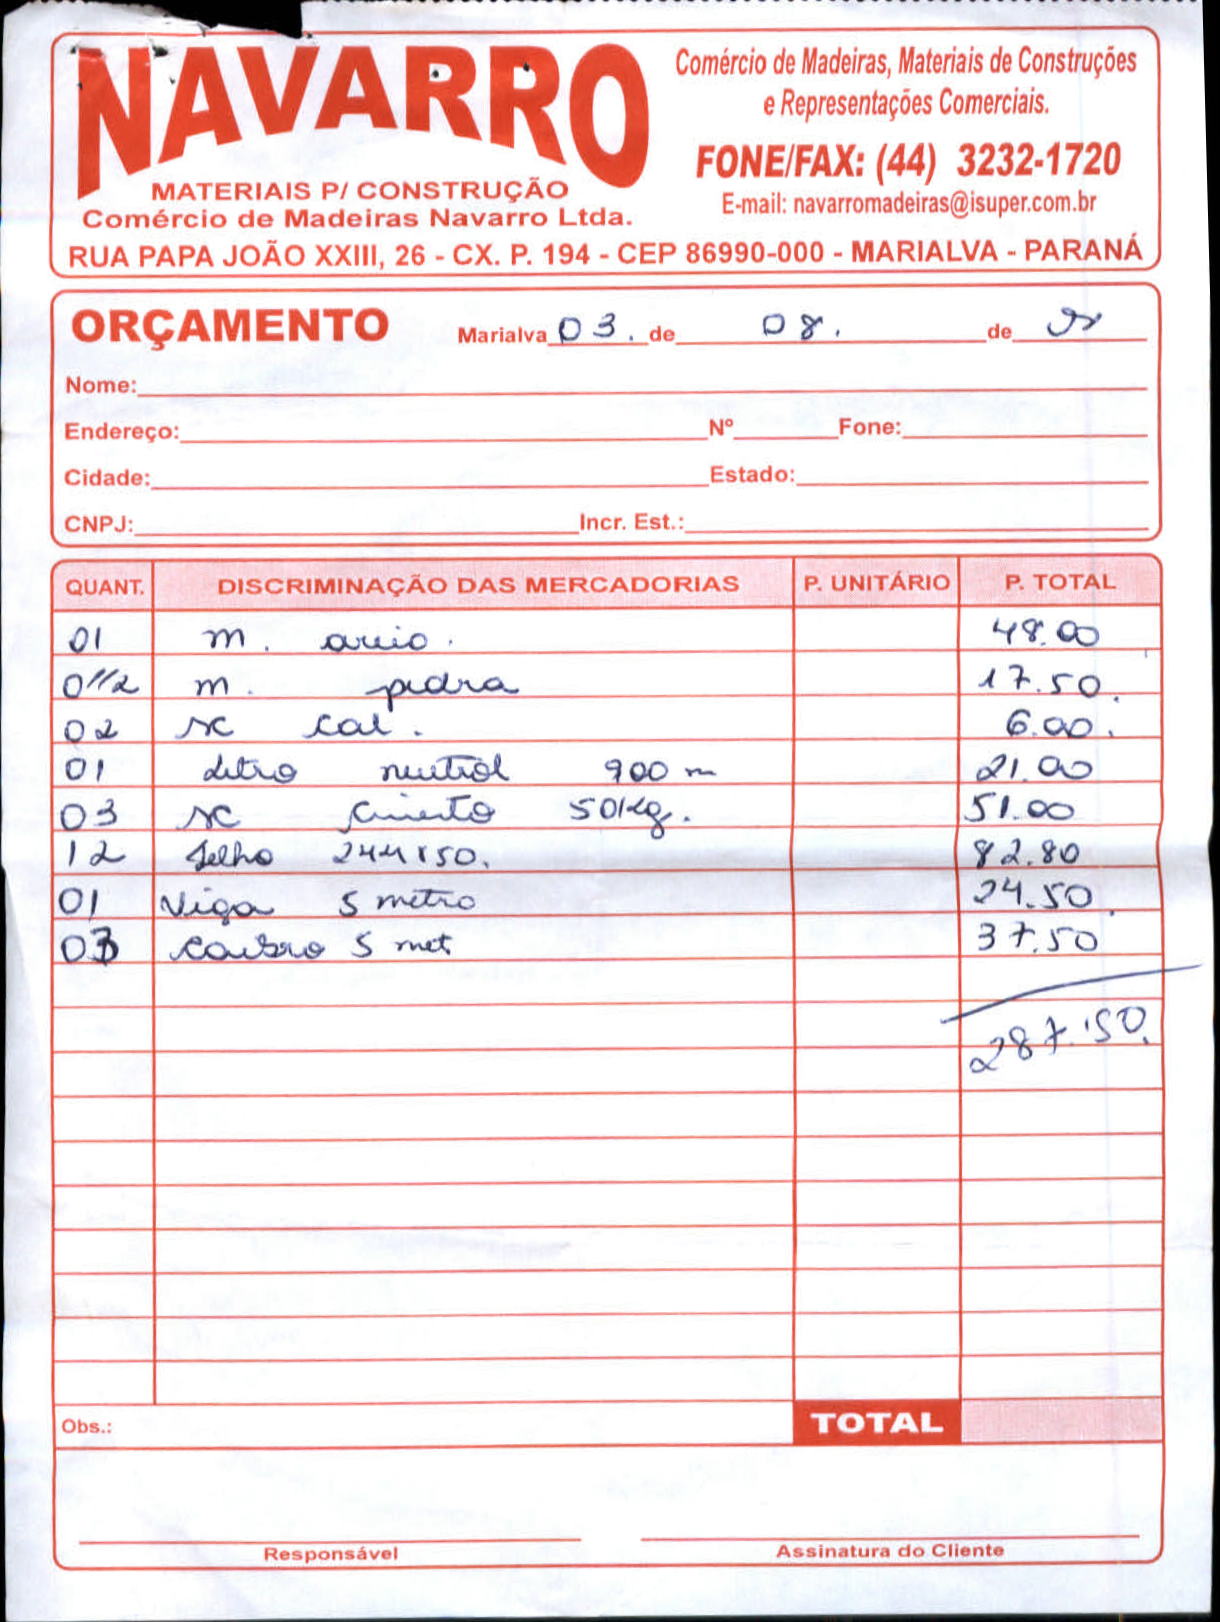 NAVARRO
MATERIAIS P/ CONSTRUÇÃO
Comércio de Madeiras Navarro Ltda.
Comércio de Madeiras, Materiais de Construções
e Representações Comerciais.
FONE/FAX: (44) 3232-1720
E-mail: navarromadeiras@isuper.com.br
RUA PAPA JOÃO XXIII, 26 - CX. P. 194 - CEP 86990-000 - MARIALVA - PARANÁ
ORÇAMENTO Marialva 03. de 08. de
Nome:
Endereço: Nº Fone:
Cidade: Estado:
CNPJ: Incr. Est.:
QUANT. DISCRIMINAÇÃO DAS MERCADORIAS P. UNITÁRIO P. TOTAL
01 m. areia. 48.00
01/2 m. pedra 17.50.
02 sc cal. 6.00.
01 Litro neutrol 900 m 21.00
03 sc cimento 50kg. 51.00
12 telha 244x50. 82.80
01 Viga 5 metro 24.50.
03 caibro 5 met 37.50
287.50.
Obs.: TOTAL
Responsável Assinatura do Cliente